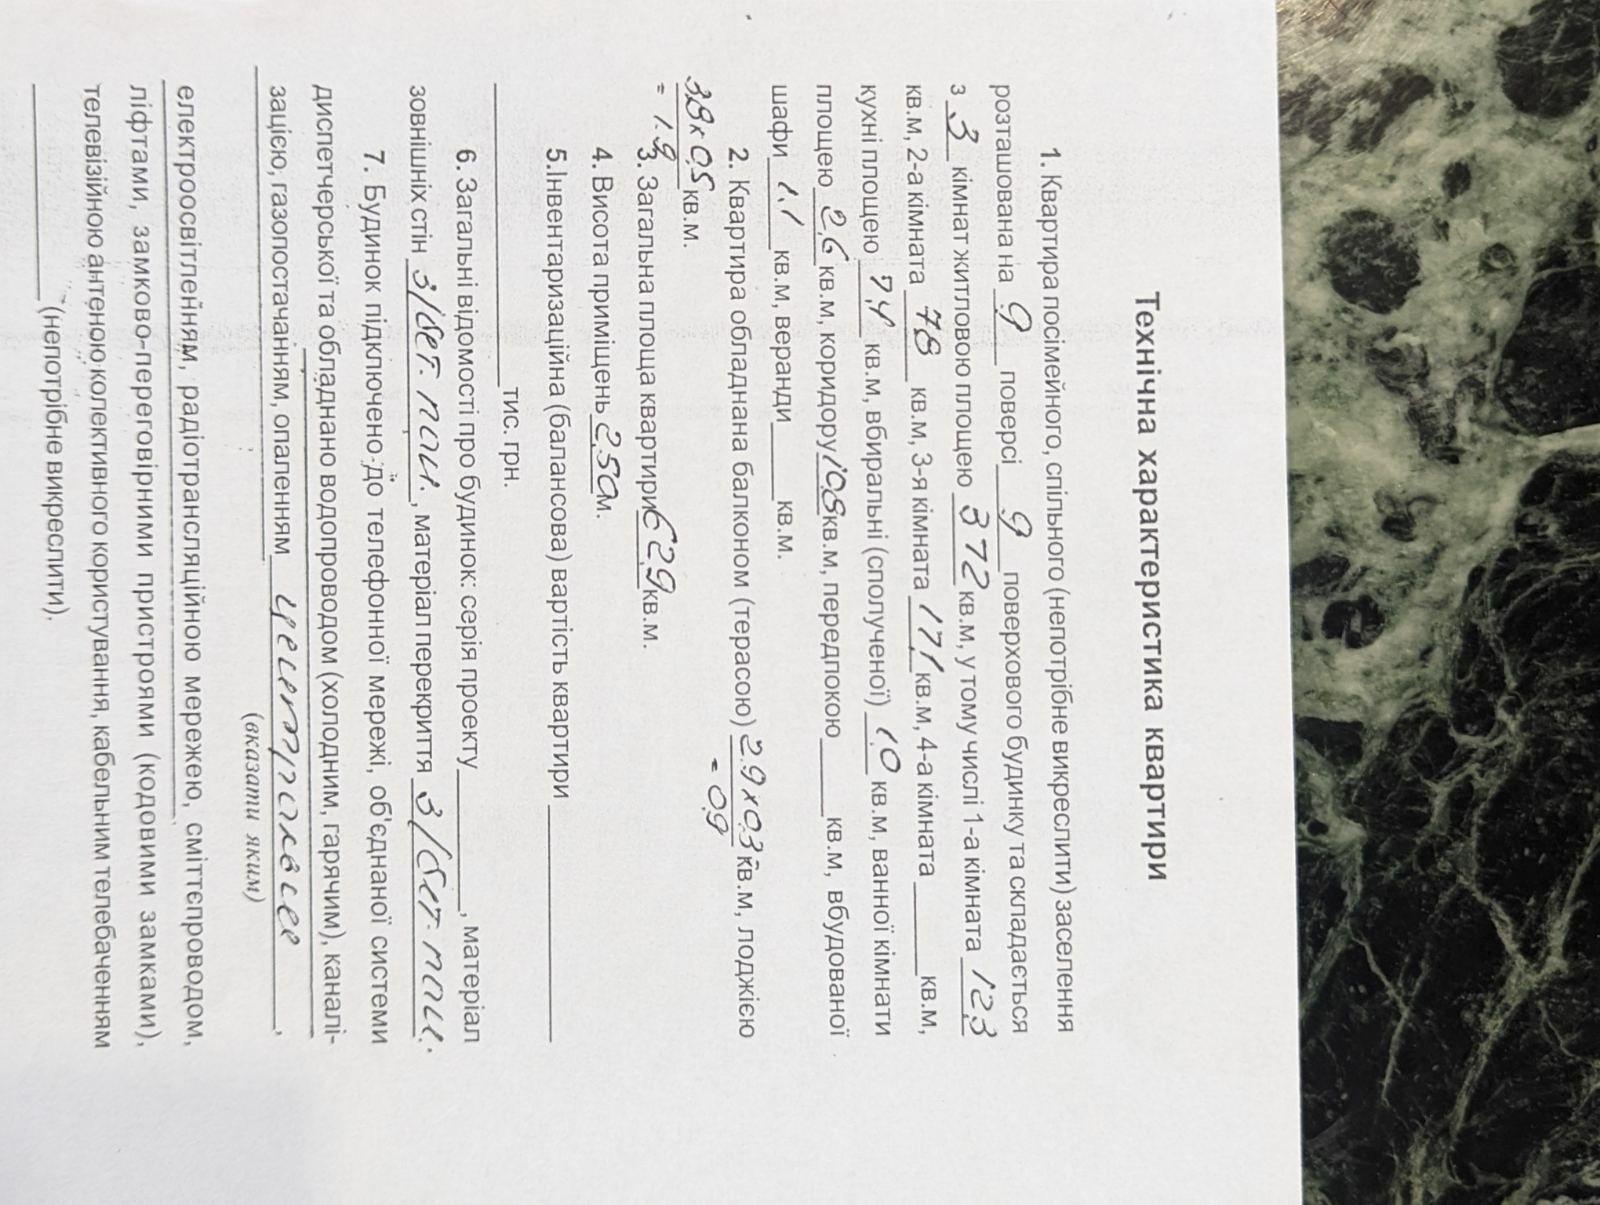 Технічна характеристика квартири
1. Квартира посімейного, спільного (непотрібне викреслити) заселення
розташована на 9 поверсі 9 поверхового будинку та складається
з 3 кімнат житловою площею 37,2 кв.м, у тому числі 1-а кімната 12,3
кв.м, 2-а кімната 7,8 кв.м, 3-я кімната 17,1 кв.м, 4-а кімната ____ кв.м,
кухні площею 7,4 кв.м, вбиральні (сполученої) 1,0 кв.м, ванної кімнати
площею 2,6 кв.м, коридору 10,8 кв.м, передпокою ____ кв.м, вбудованої
шафи 1.1 кв.м, веранди ____ кв.м.
2. Квартира обладнана балконом (терасою) 2.9 x 0.3 кв.м, лоджією
= 0,9
3,8 x 0,5 кв.м.
= 1.9
3. Загальна площа квартири 62,9 кв.м.
4. Висота приміщень 2,50 м.
5.Інвентаризаційна (балансова) вартість квартири ____
____ тис. грн.
6. Загальні відомості про будинок: серія проекту ____, матеріал
зовнішніх стін з/бет. пан., матеріал перекриття з/бет. пан.
7. Будинок підключено до телефонної мережі, об'єднаної системи
диспетчерської та обладнано водопроводом (холодним, гарячим), каналі-
зацією, газопостачанням, опаленням централь,
(вказати яким)
електроосвітленням, радіотрансляційною мережею, сміттєпроводом,
ліфтами, замково-переговірними пристроями (кодовими замками),
телевізійною антеною колективного користування, кабельним телебаченням
____ (непотрібне викреслити).